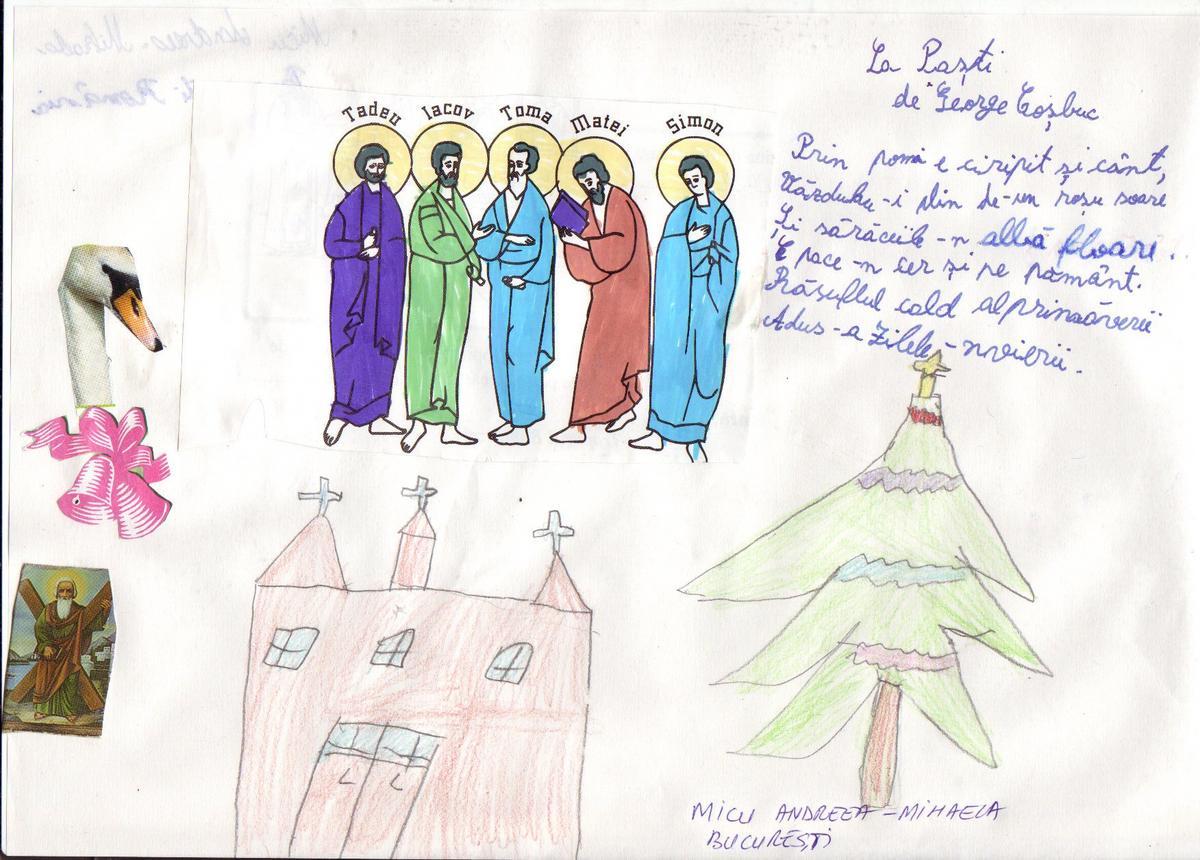 Tadeu Iacov Toma Matei Simon
La Paști
de George Coșbuc
Prin pomi e ciripit și cânt,
Văzduhu-i plin de-un roșu soare
Și sărăciile-n albă floare.
E pace-n cer și pe pământ.
Răsuflul cald al primăverii
Adus-a zilele-nvierii.
MICU ANDREEA-MIHAELA
BUCUREȘTI